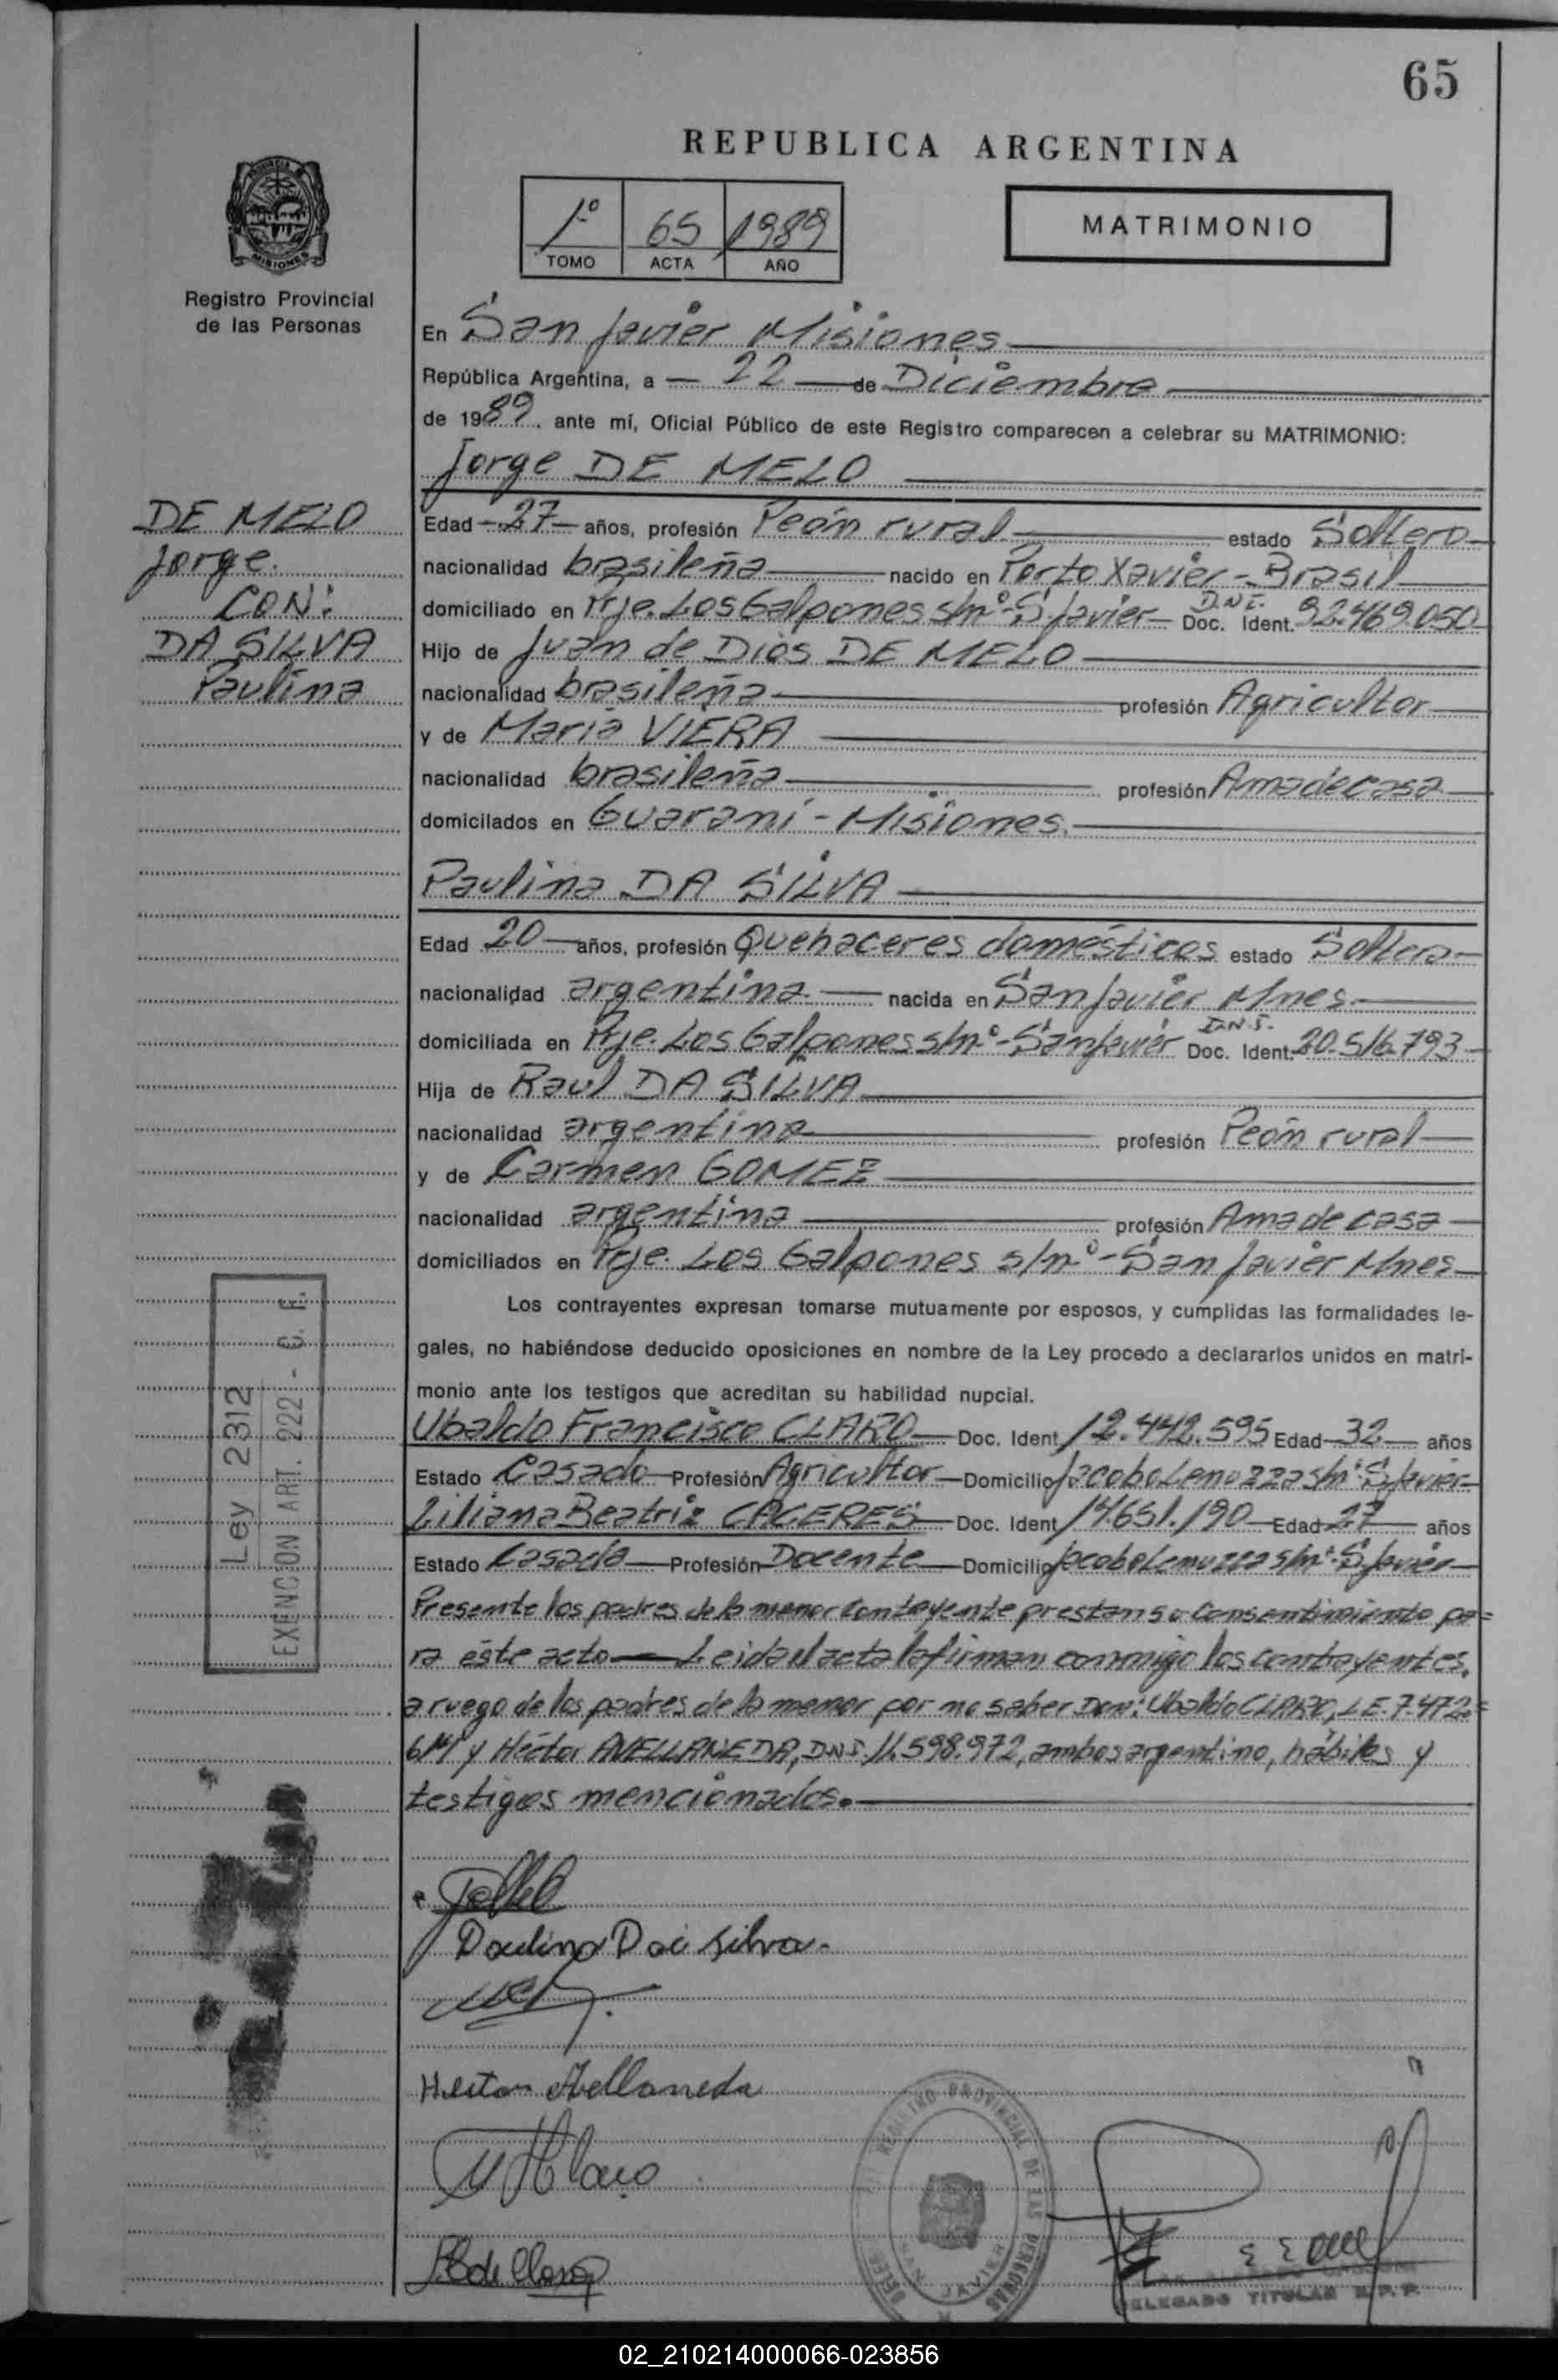 65
REPUBLICA ARGENTINA
1º 65 1989
TOMO ACTA AÑO
MATRIMONIO
PROVINCIA DE MISIONES
Registro Provincial
de las Personas
En San Javier Misiones
República Argentina, a 22 de Diciembre
de 1989, ante mí, Oficial Público de este Registro comparecen a celebrar su MATRIMONIO:
Jorge DE MELO
DE MELO
Jorge.
CON:
DA SILVA
Paulina
Edad 27 años, profesión Peón rural estado Soltero
nacionalidad brasileña nacido en Porto Xavier - Brasil
domiciliado en Pje. Los Galpones s/nº - S. Javier D.N.I. Doc. Ident. 92.469.050
Hijo de Juan de Dios DE MELO
nacionalidad brasileña profesión Agricultor
y de Maria VIERA
nacionalidad brasileña profesión Ama de casa
domicilados en Guaraní - Misiones.
Paulina DA SILVA
Edad 20 años, profesión Quehaceres domésticos estado Soltera
nacionalidad argentina nacida en San Javier Mnes.
domiciliada en Pje. Los Galpones s/nº - San Javier D.N.I. Doc. Ident. 20.516.793
Hija de Raul DA SILVA
nacionalidad argentina profesión Peón rural
y de Carmen GOMEZ
nacionalidad argentina profesión Ama de casa
domiciliados en Pje. Los Galpones s/nº - San Javier Mnes
Los contrayentes expresan tomarse mutuamente por esposos, y cumplidas las formalidades le-
gales, no habiéndose deducido oposiciones en nombre de la Ley procedo a declararlos unidos en matri-
monio ante los testigos que acreditan su habilidad nupcial.
Ubaldo Francisco CLARO Doc. Ident 12.442.595 Edad 32 años
Estado Casado Profesión Agricultor Domicilio s/nº S. Javier
Liliana Beatriz CACERES Doc. Ident 14.651.190 Edad 27 años
Estado Casada Profesión Docente Domicilio s/nº S. Javier
Presente los padres de la menor contayente prestan su consentimiento pa=
ra éste acto Leida el acta la firman conmigo los contrayentes,
a ruego de los padres de la menor por no saber Don: Ubaldo CLARO, L.E. 7.472.=
614 y Héctor AVELLANEDA, D.N.I. 11.598.972, ambos argentino, hábiles y
testigos mencionados.
Ley 2312
EXENCION ART. 222 - C. F.
Paulina Da silva.
Hector Avellaneda
REGISTRO PROVINCIAL DE LAS PERSONAS
SAN JAVIER
DELEGADO TITULAR R.P.P.
02_210214000066-023856